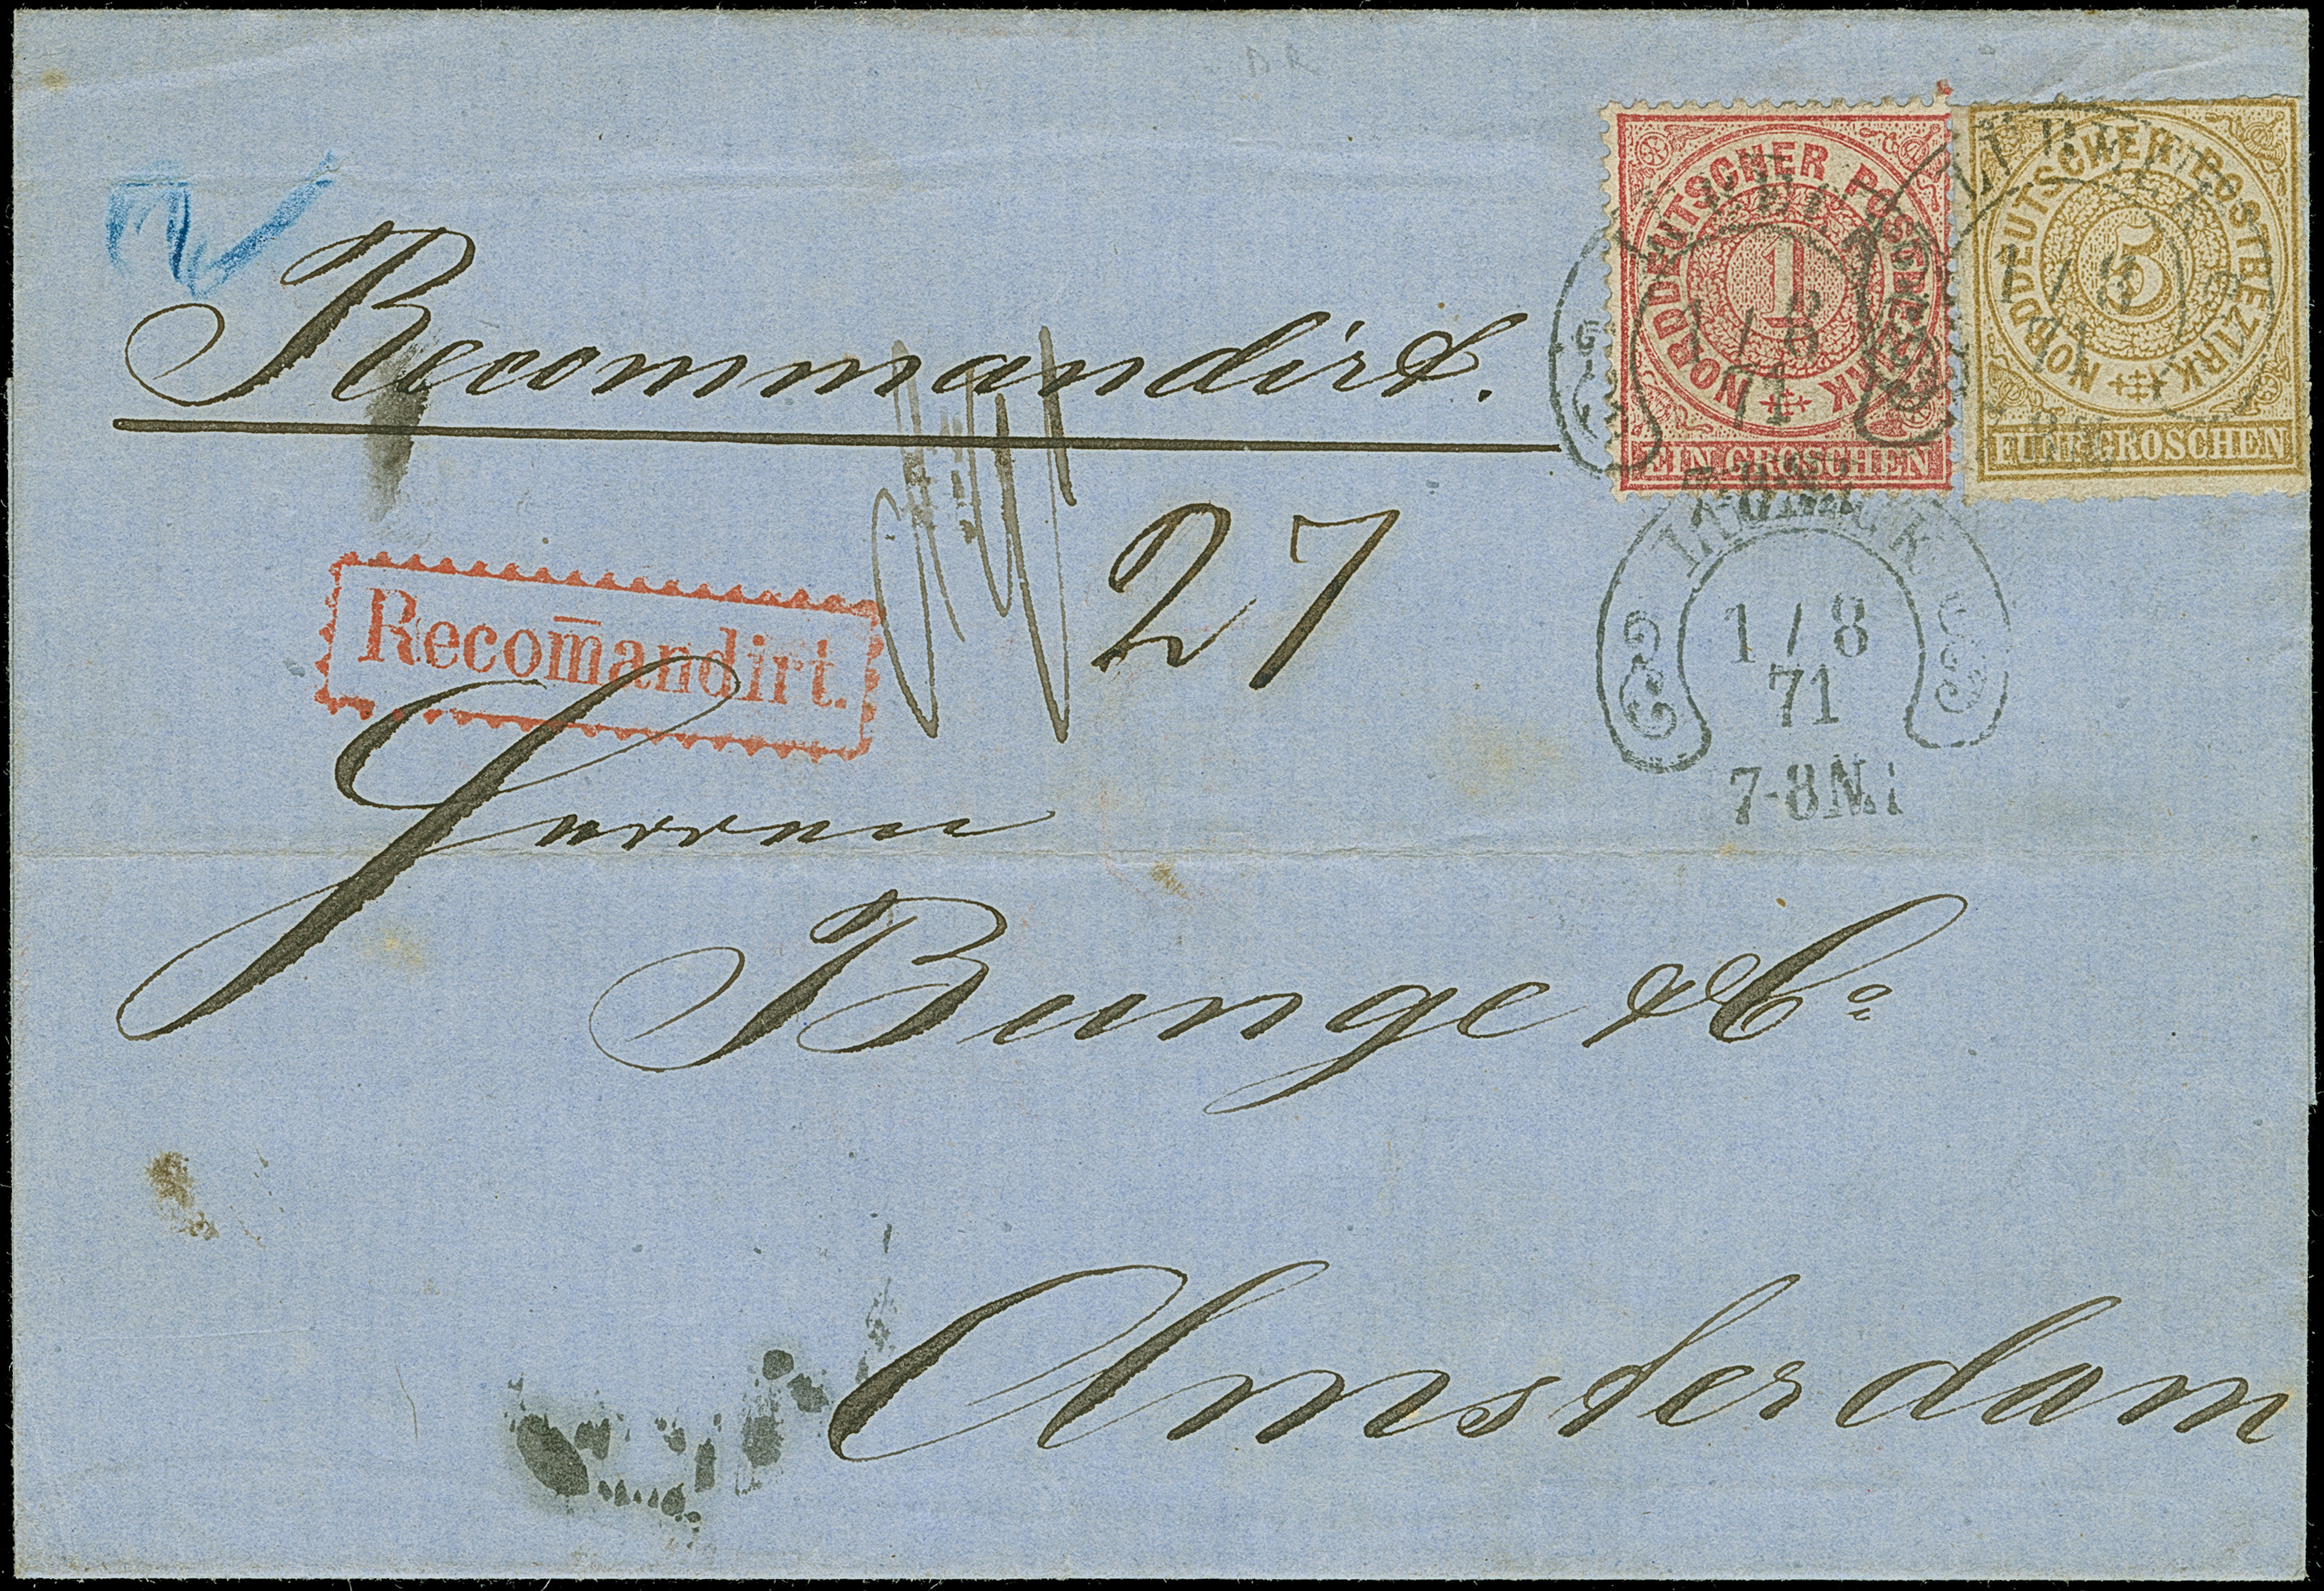 Recommandirt.
NORDDEUTSCHER POSTBEZIRK
1
EIN GROSCHEN
NORDDEUTSCHER POSTBEZIRK
5
FÜNF GROSCHEN
1 / 8
71
1 / 8
71
27
Recom̄andirt.
LÜBECK
1 / 8
71
7-8N.
Herren
Bunge & Co
Amsterdam